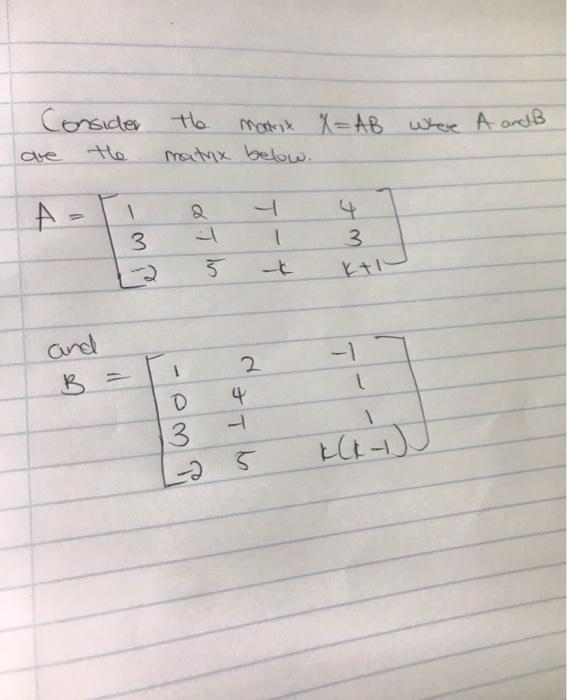 Consider the matrix X=AB where A and B
are the matrix below.
A = [ 1 2 -1 4
3 -1 1 3
-2 5 -k k+1 ]
and
B = [ 1 2 -1
0 4 1
3 -1 1
-2 5 k(k-1) ]